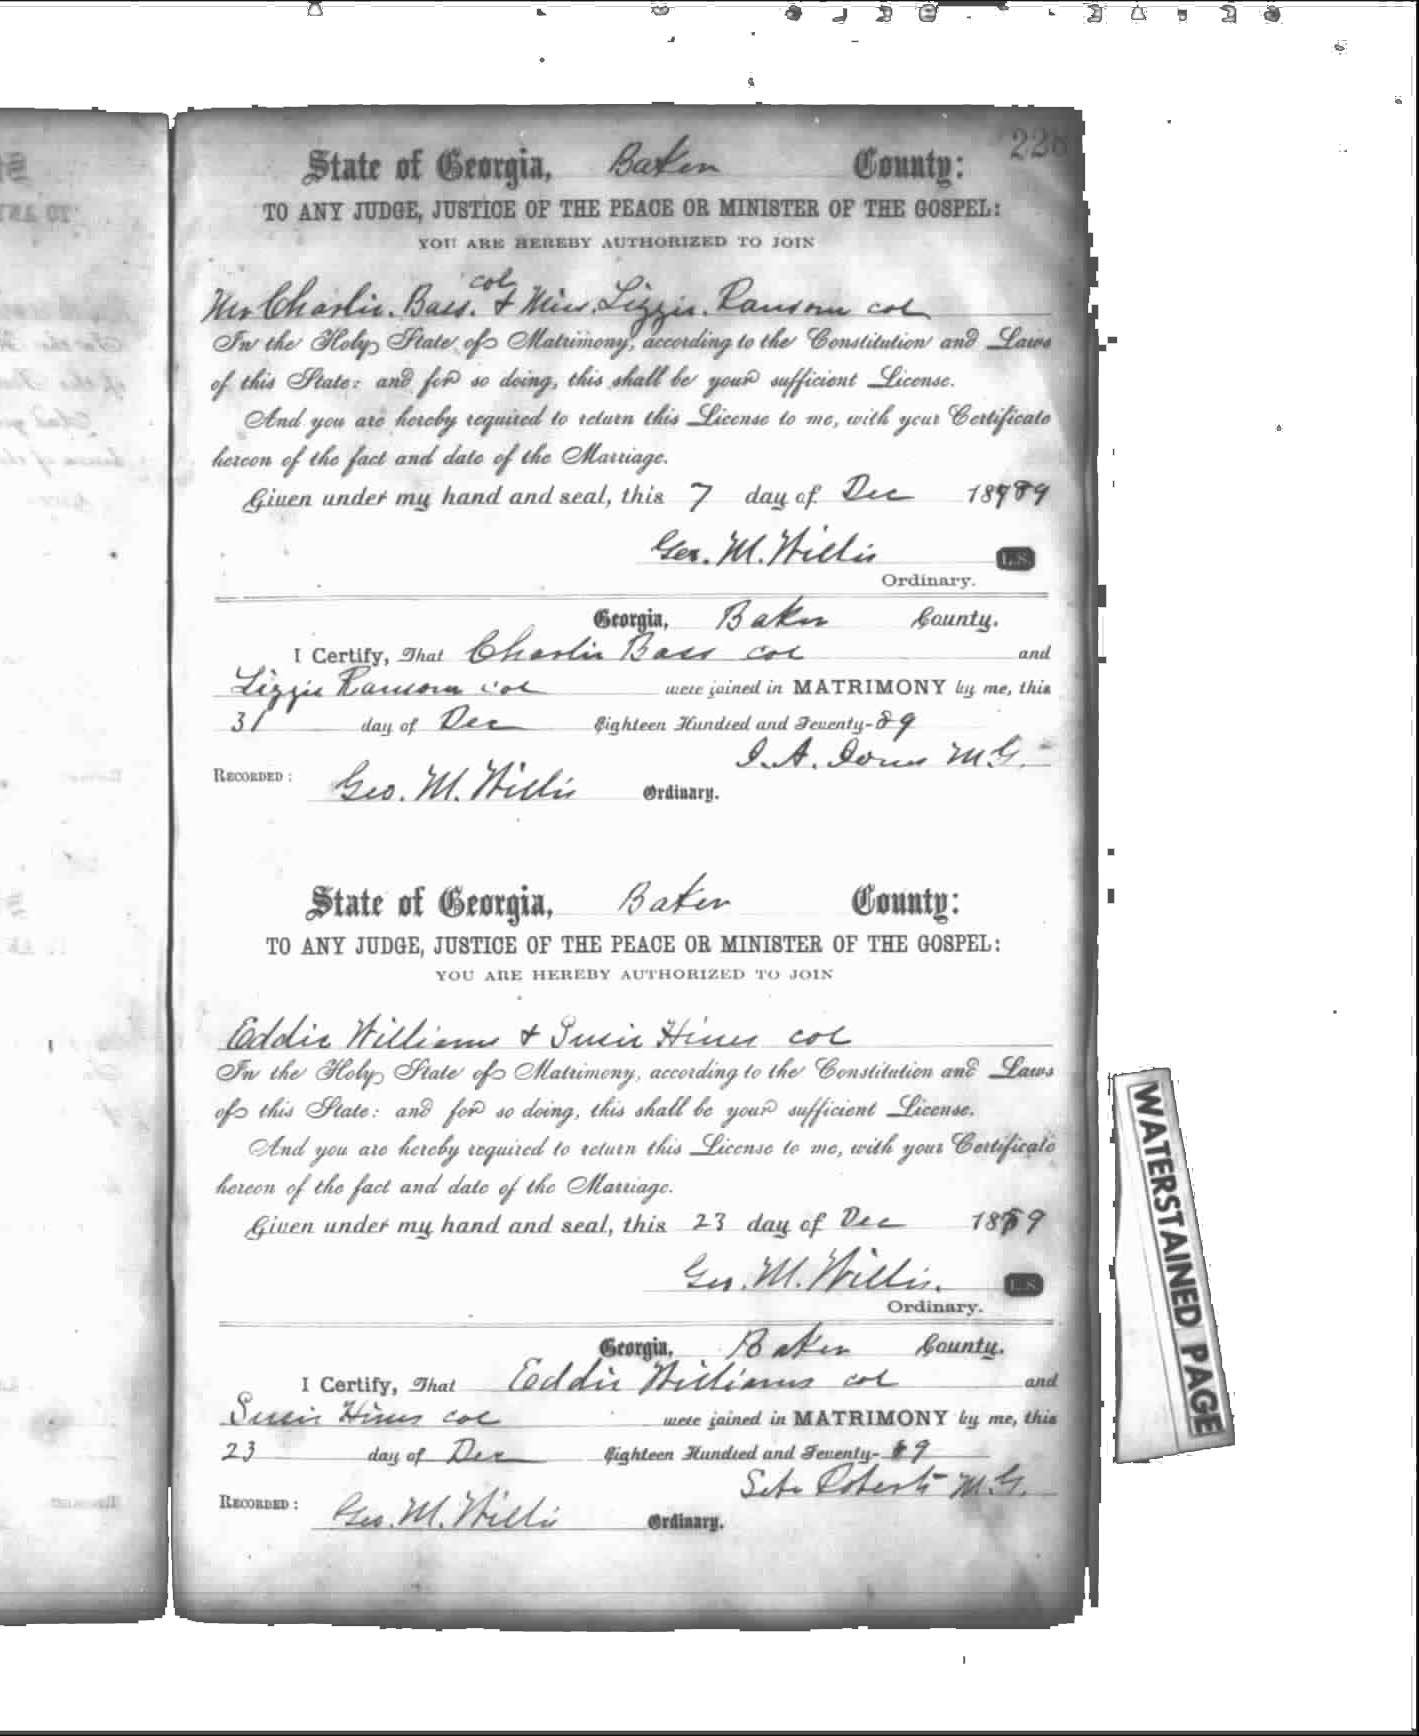 228
State of Georgia, Baker County:
TO ANY JUDGE, JUSTICE OF THE PEACE OR MINISTER OF THE GOSPEL:
YOU ARE HEREBY AUTHORIZED TO JOIN
col
Mr Charlie. Bass. & Miss. Lizzie. Ransom col
In the Holy State of Matrimony, according to the Constitution and Laws
of this State: and for so doing, this shall be your sufficient License.
And you are hereby required to return this License to me, with your Certificate
hereon of the fact and date of the Marriage.
Given under my hand and seal, this 7 day of Dec 1889
Geo. M. Willis L.S.
Ordinary.
Georgia, Baker County.
I Certify, That Charlie Bass col and
Lizzie Ransom col were joined in MATRIMONY by me, this
31 day of Dec Eighteen Hundred and Seventy-89
I. A. Jones M.G.
RECORDED: Geo. M. Willis Ordinary.
State of Georgia, Baker County:
TO ANY JUDGE, JUSTICE OF THE PEACE OR MINISTER OF THE GOSPEL:
YOU ARE HEREBY AUTHORIZED TO JOIN
Eddie Williams & Susie Hines col
In the Holy State of Matrimony, according to the Constitution and Laws
of this State: and for so doing, this shall be your sufficient License.
And you are hereby required to return this License to me, with your Certificate
hereon of the fact and date of the Marriage.
Given under my hand and seal, this 23 day of Dec 1889
Geo. M. Willis. L.S.
Ordinary.
Georgia, Baker County.
I Certify, That Eddie Williams col and
Susie Hines col were joined in MATRIMONY by me, this
23 day of Dec Eighteen Hundred and Seventy-89
Roberts M.G.
RECORDED: Geo. M. Willis Ordinary.
WATERSTAINED PAGE